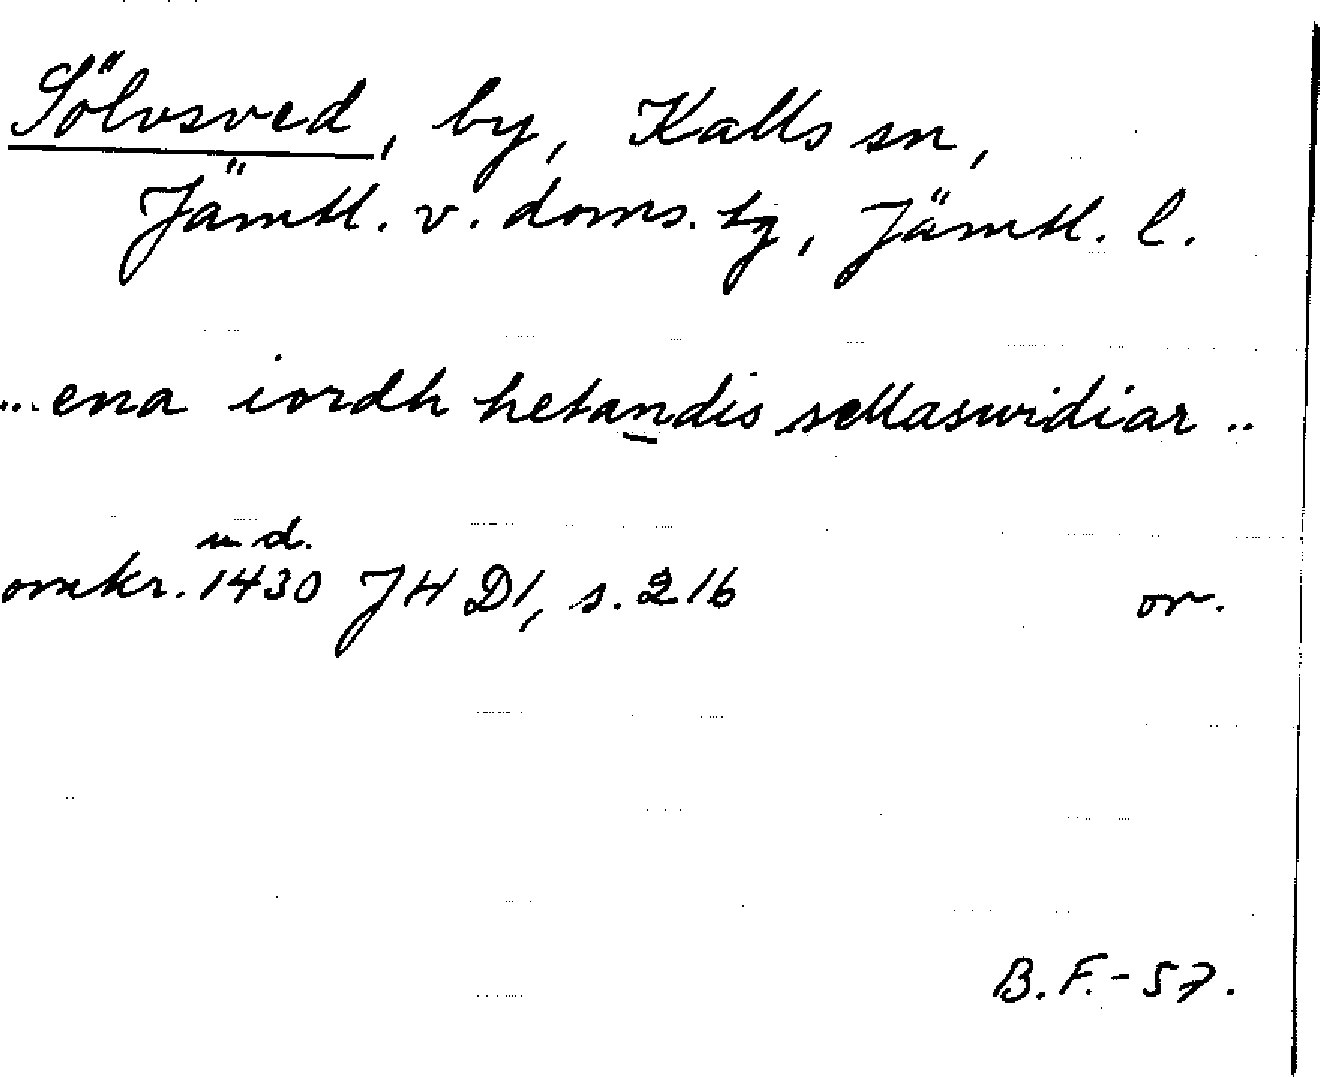 Sölvsved, by, Kalls sn,
Jämtl. v. doms. tg, Jämtl. l.
... ena iordh hetandis sellaswidiar ..
u d.
omkr. 1430 JHD1, s. 216 or.
B.F.-57.